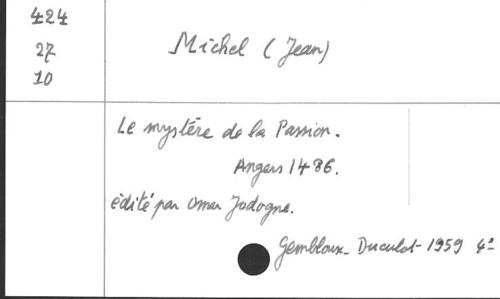 424
27
10
Michel (Jean)
Le mystère de la Passion.
Angers 1486.
édité par Omer Jodogne.
Gembloux - Duculot - 1959 4°